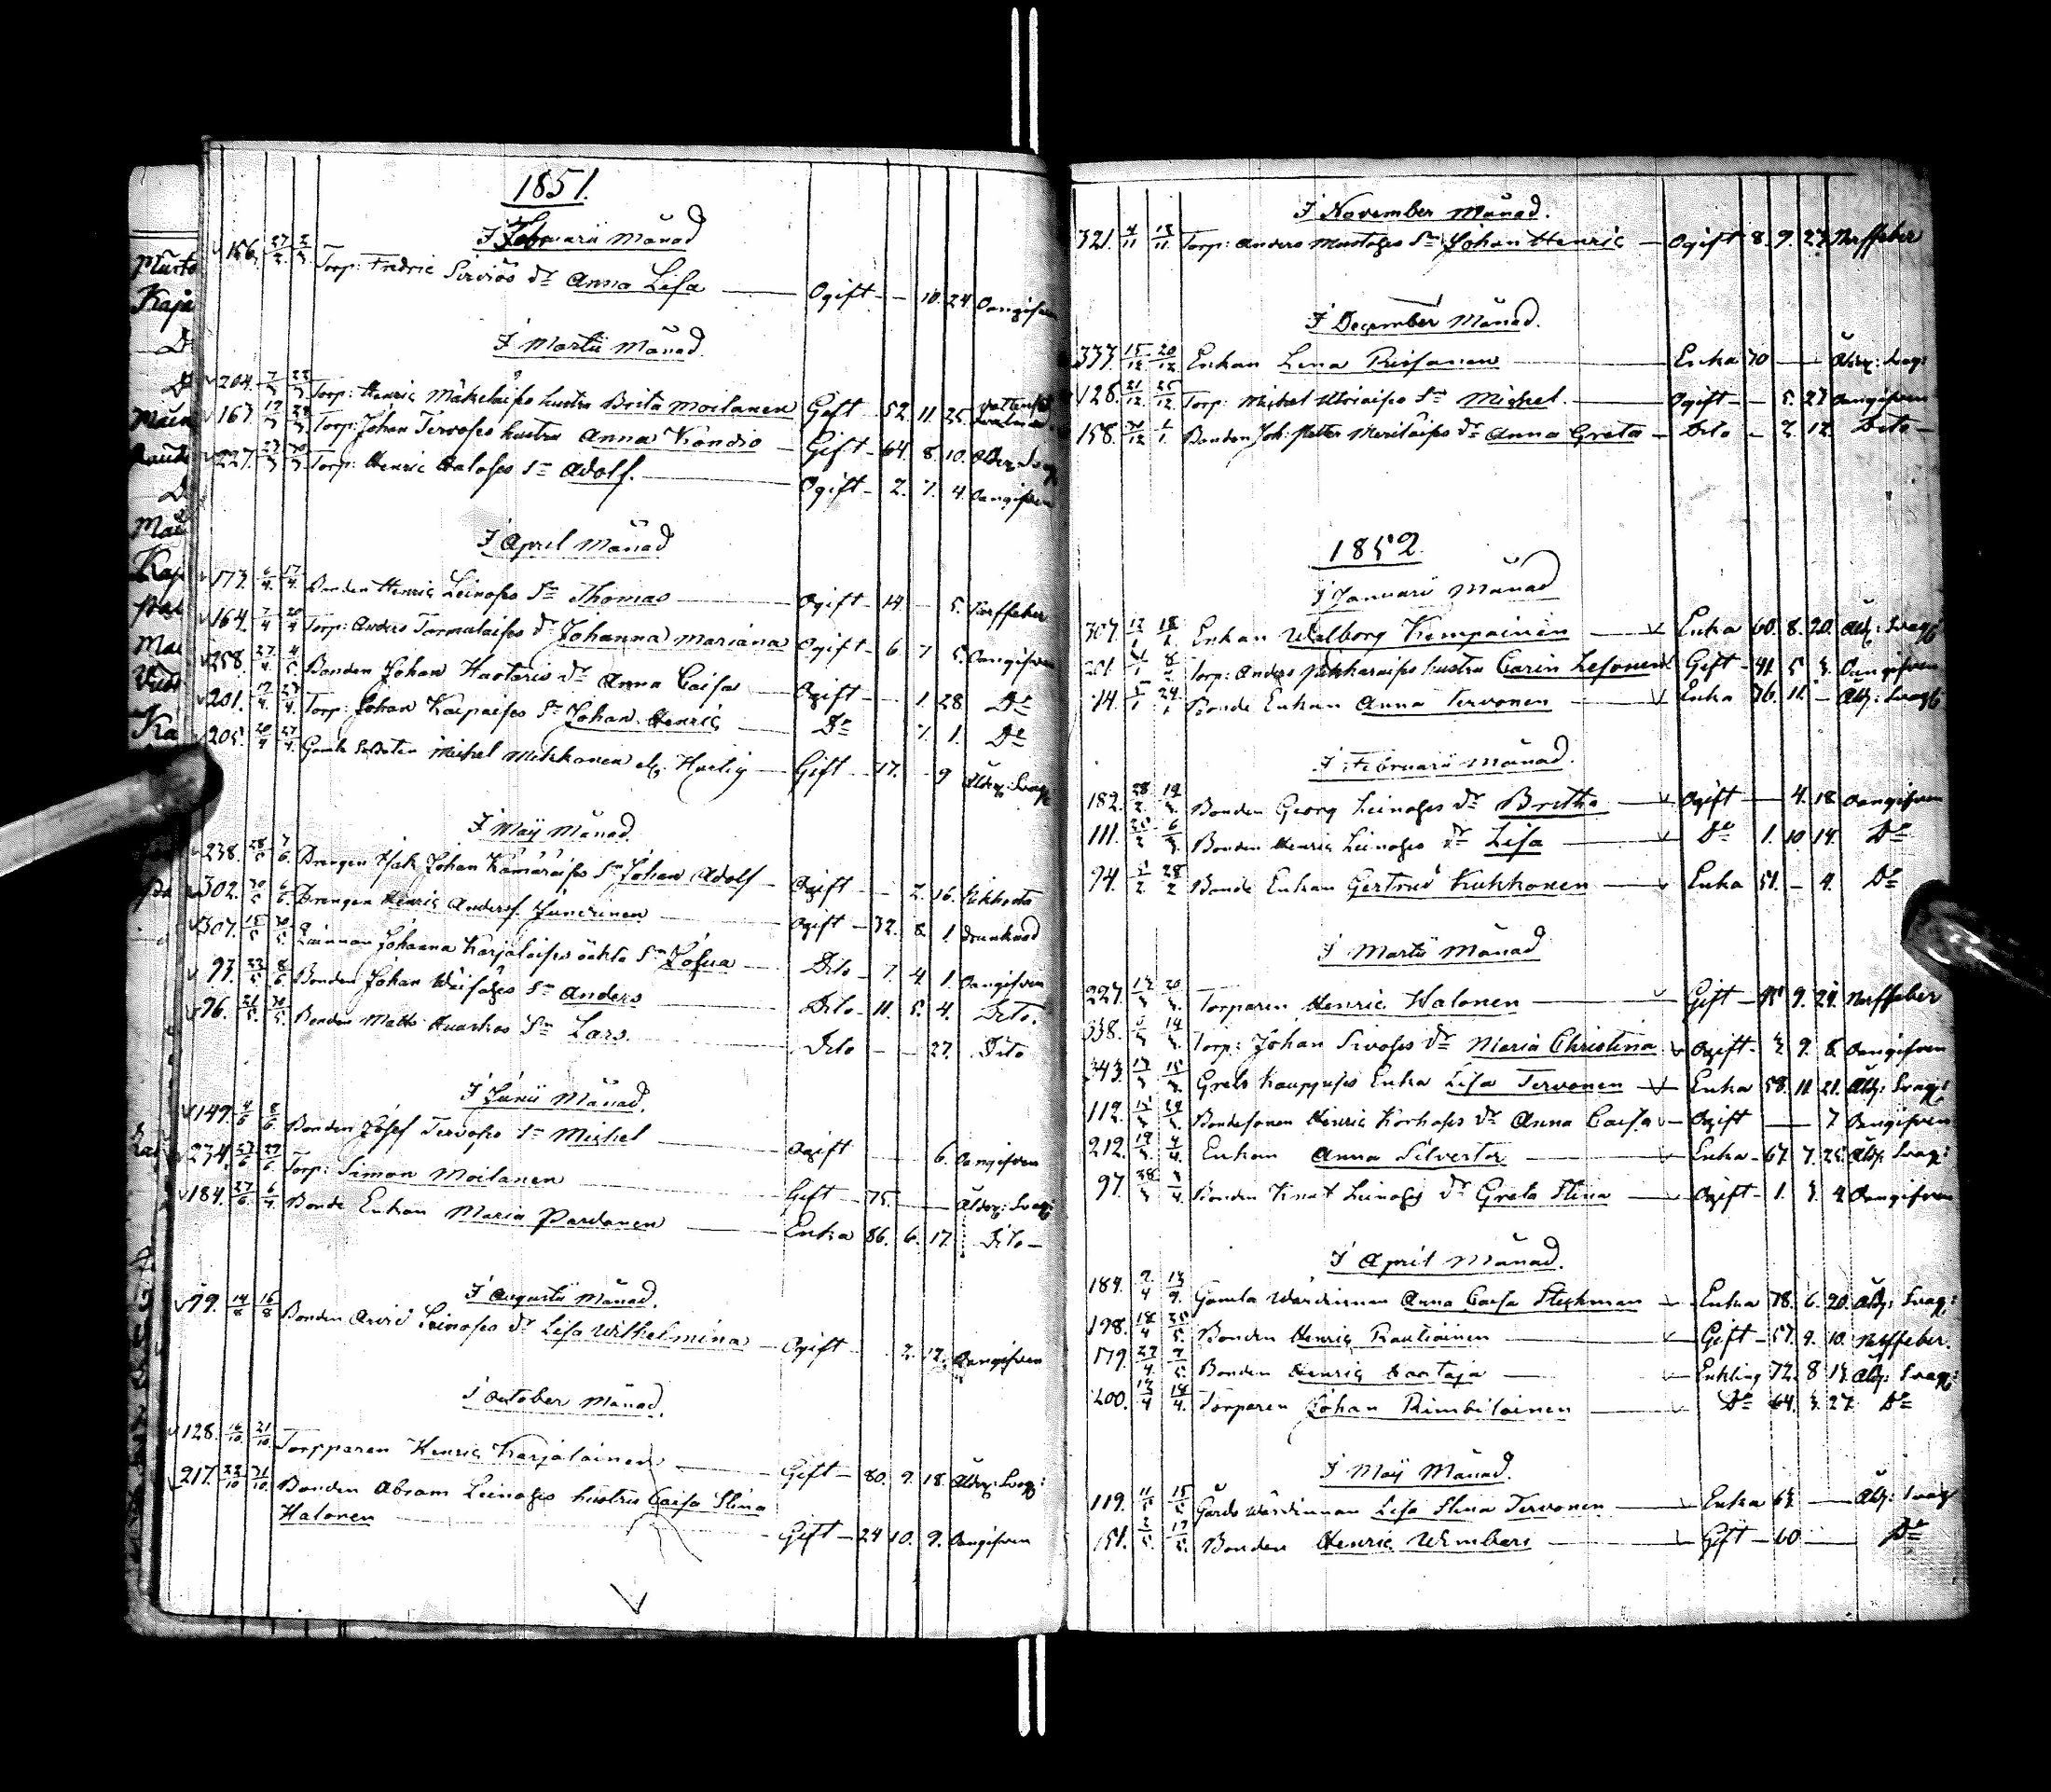 1851.
I Februarii Månad
156. 27/2 2/3 Torp: Fredric Sirviös dr Anna Lisa — Ogift — — 10. 24 Oangifven
I Martii Månad.
204. 7/3 23/3 Torp: Henric Mäkeläises hustru Brita Moilanen Gift 52 11. 25.
167. Torp: Johan Tervoses hustru Anna Kondio — Gift — 64. 8. 10. Ålder: Svagh
227. Torp: Henric Haloses Sn Adolf. — Ogift — 2. 7. 4. Oangifven
I April Månad
173. 6/4 17/4 Bonden Henric Leinoses Sn Thomas — Ogift — 14 — 5. Nerffeber
164. 7/4 20/4 Torp: Anders Tormulaises dr Johanna Mariana Ogift — 6 7 5. Oangifven
258. 27/4 4/5 Bonden Johan Haataris dr Anna Caisa — Ogift — 1. 28 Do
201. 17/4 27/4 Torp: Johan Karpaises Sn Johan Henric — Do 7. 1. Do
205. 20/4 27/4 Gamle Soldaten Michel Mikkonen el. Hurtig — Gift — 77. — 9 Ålder: Svagh
I Maij Månad.
238. 28/5 7/6 Drengen Isak Johan Kämäräises Sn Johan Adolf — Ogift — — 2. 16. Kikhosta
302. 30/5 6/6 Drengen Henric Andersf. Juntunen — Ogift — 32. 8. 1. Drunknad
307. 15/5 30/5 Qvinnan Johanna Karjalaises oäkta Sn Josua — Dito — 7. 4 1. Oangifven
97. 23/5 8/6 Bonden Johan Wäisäses Sn Anders — Dito — 11. 5. 4. Dito.
96. 21/5 30/5 Bonden Matts Huaskas Sn Lars. — Dito — — 27. Dito
I Junii Månad.
149. 4/6 8/6 Bonden Josef Tervoses Sn Michel — Ogift 6. Oangifven
234. 23/6 29/6 Torp: Simon Moilanen — Gift — 75. — — Ålder: Svagh
184. 27/6 Bonde Enkan Maria Pardanen — Enka 86. 6. 17. Dito —
I Augustii Månad.
79. 14/8 16/8 Bonden Arvid Leinoses dr Lisa Wilhelmina — Ogift 2. 17. Oangifven
I October Månad.
128. 16/10 21/10 Torpparen Henric Karjalainen — Gift — 80. 9. 18. Ålder: Svagh:
217. 23/10 31/10 Bonden Abram Leinoses hustru Caisa Stina
Halonen — Gift — 24 10. 9. Oangifven
I November Månad.
321. 4/11 13/11 Torp: Anders Mustoses Sn Johan Henric — Ogift 8. 9. 23. Nerffeber
I December Månad.
333. 15/12 20/12 Enkan Lena Riisanen — Enka 70 — — Ålder: Svag:
128. 21/12 25/12 Torp: Michel Utriaises Sn Michel. — Ogift — — 5. 27 Oangifven
158. Bonden Joh: Petter Meriläises dr Anna Greta — Dito — 2. 12. Dito —
1852.
I Januarii Månad
307. Enkan Walborg Kempainen — Enka 60. 8. 20. Åld: Svagh
201 Torp: Anders Pikkaraises hustru Carin Lesonen Gift — 41. 5 3. Oangifven
14. Bonde Enkan Anna Tervonen — Enka 76. 11. — Åld: Svagh
I Februarii Månad.
182. Bonden Georg Leinoses dr Britha — Ogift — 4. 18 Oangifven
111. Bonden Henric Leinoses dr Lisa — Do 1. 10 14. Do
94. 28/2 Bonde Enkan Gertrud Kukkonen — Enka 51. — 4. Do
I Martii Månad
227. Torparen Henric Halonen — Gift — 9. 24. Nerffeber
338. Torp: Johan Sivoses dr Maria Christina Ogift — 2. 9. 8. Oangifven
343. Grels Kauppises Enka Lisa Tervonen — Enka 58. 11. 21. Åld: Svagh:
112. Bondesonen Henric Korhoses dr Anna Caisa — Ogift — 7 Oangifven
212. Enkan Anna Silvertar — Enka — 67. 7. 25. Åld: Svagh:
97. Bonden Knut Leinoses dr Greta Stina — Ogift — 1. 3. 4. Oangifven
I April Månad.
184. Gamla Wärdinnan Anna Caisa Stickman — Enka 78. 6. 20. Åld: Svag:
198. Bonden Henric Rautiainen — Gift — 57. 9. 10. Nerffeber.
179. Bonden Henric Haataja — Enkling 72. 8 13. Åld: Svagh:
200. Torparen Johan Rimbiläinen — Do 64. 3. 27. Do
I Maij Månad.
119. 11/5 15/5 Gårds Wärdinnan Lisa Stina Tervonen — Enka 63. — Åld: Svagh
151. Bonden Henric Wimbari — Gift — 60 — Do